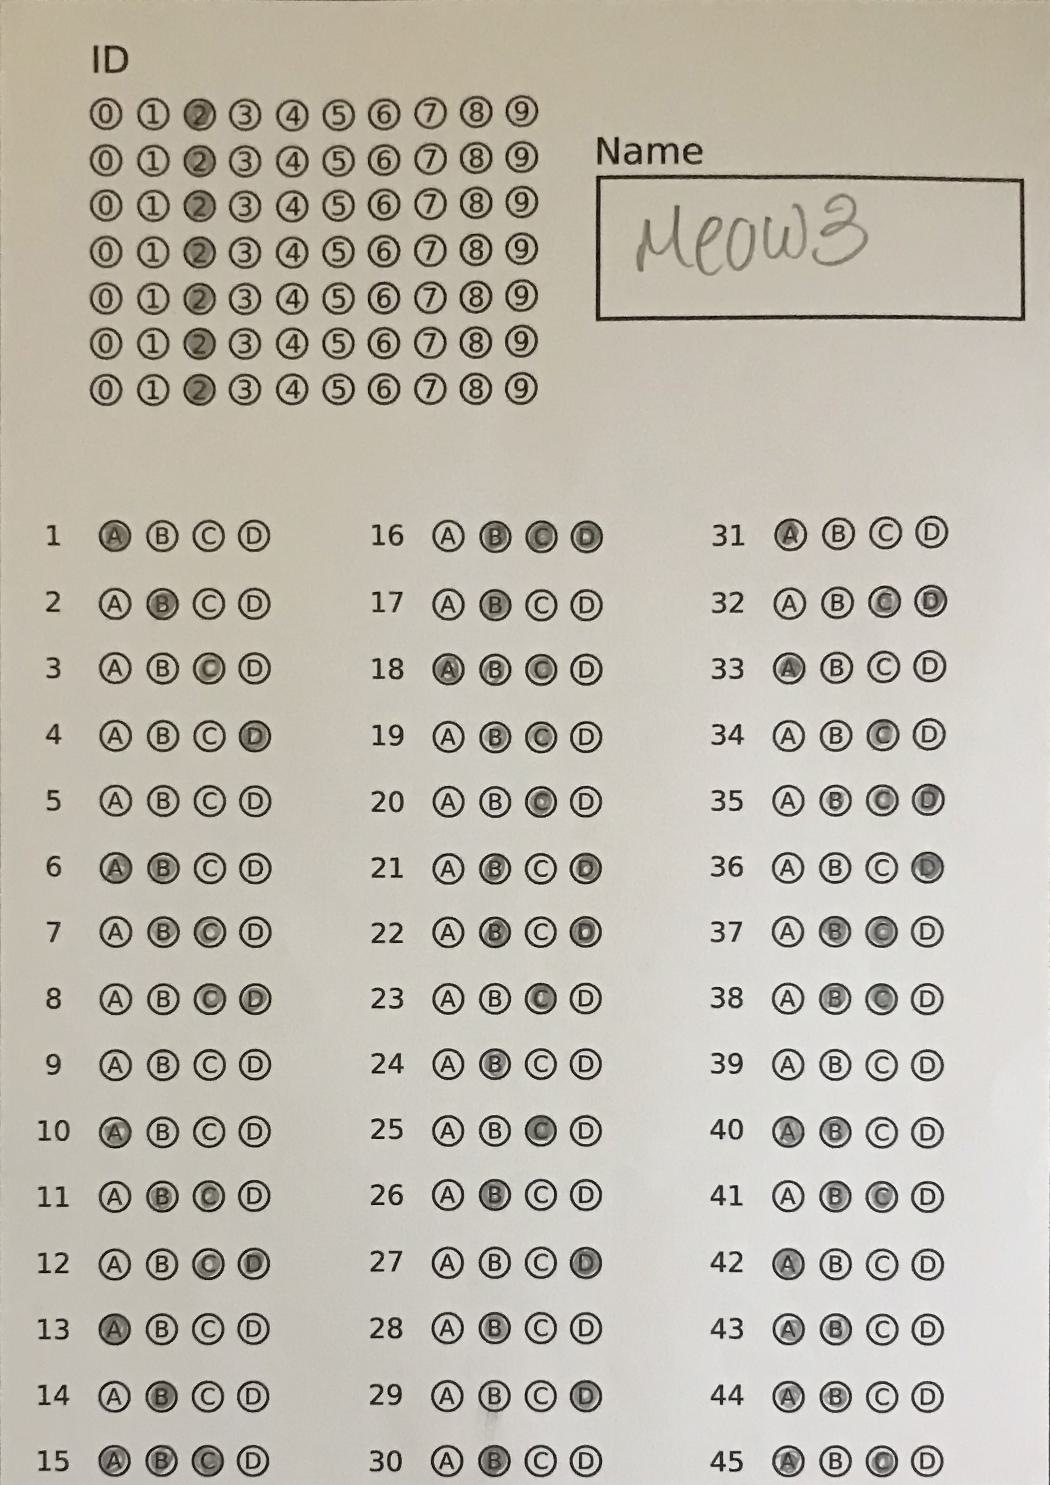 ID
0 1 2 3 4 5 6 7 8 9
0 1 2 3 4 5 6 7 8 9
0 1 2 3 4 5 6 7 8 9
0 1 2 3 4 5 6 7 8 9
0 1 2 3 4 5 6 7 8 9
0 1 2 3 4 5 6 7 8 9
0 1 2 3 4 5 6 7 8 9
Name
Meow3
1 A B C D
2 A B C D
3 A B C D
4 A B C D
5 A B C D
6 A B C D
7 A B C D
8 A B C D
9 A B C D
10 A B C D
11 A B C D
12 A B C D
13 A B C D
14 A B C D
15 A B C D
16 A B C D
17 A B C D
18 A B C D
19 A B C D
20 A B C D
21 A B C D
22 A B C D
23 A B C D
24 A B C D
25 A B C D
26 A B C D
27 A B C D
28 A B C D
29 A B C D
30 A B C D
31 A B C D
32 A B C D
33 A B C D
34 A B C D
35 A B C D
36 A B C D
37 A B C D
38 A B C D
39 A B C D
40 A B C D
41 A B C D
42 A B C D
43 A B C D
44 A B C D
45 A B C D